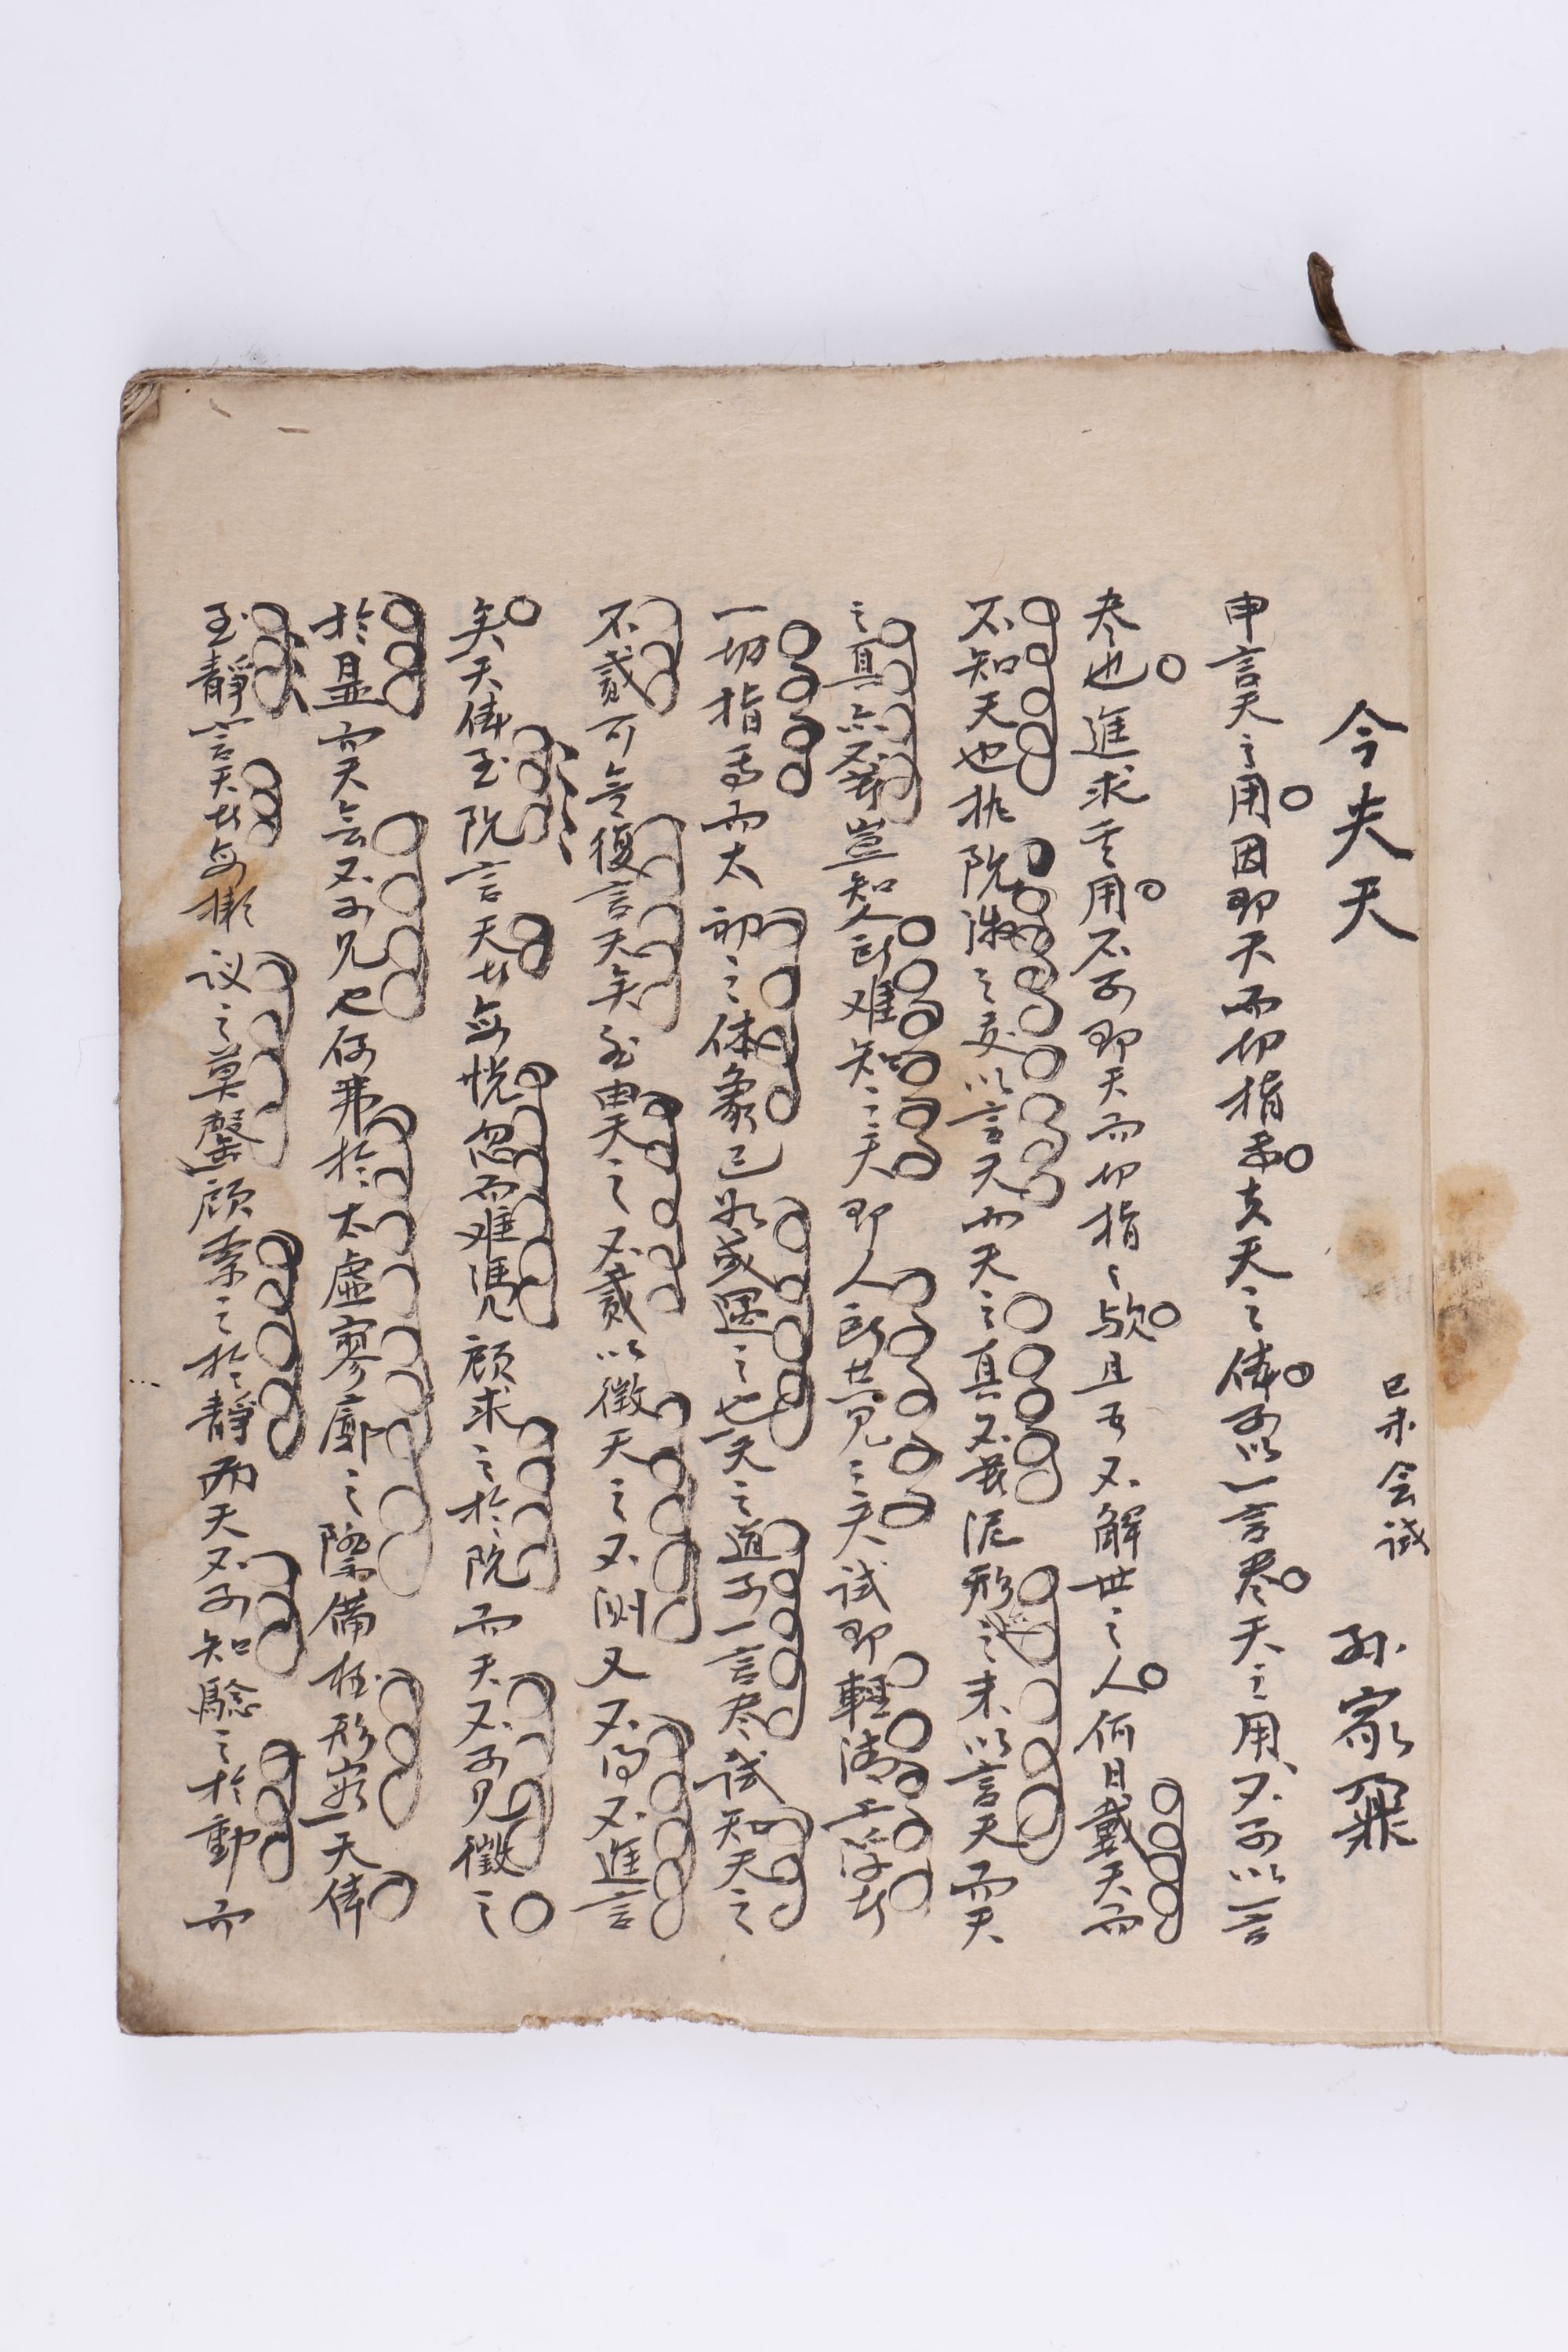 今夫天
己未会試　孙家鼐
申言天之用因即天而切指焉夫天之体可以一言尽天之用不可以一言
尽也進求其用不可即天而切指之欤且吾不解世之人何日戴天而
不知天也執之交以言天而天之真不泥形之末以言天而天
之真亦不豈知人所难知之天即人所共见之天试即輕清上浮者
一切指焉而太初之体象已昭或遇之也天之道可一言尽试知天之
不貳可無復言天矣然由天之不貳以徵天之不测又不得不進言
矣天体至言天者每恍忽而难憑顾求之於而天不可徵之
於是而天無不可见也何弗於太虛寥廓之際備極形容一天体
至靜言天者每擬议之莫罄顾索之於靜而天不可知驗之於動而